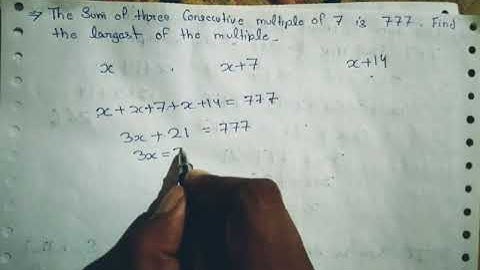 ⇒ The Sum of three Consecutive multiple of 7 is 777. Find
the largest of the multiple.
x x+7 x+14
x+x+7+x+14=777
3x+21 =777
3x=7